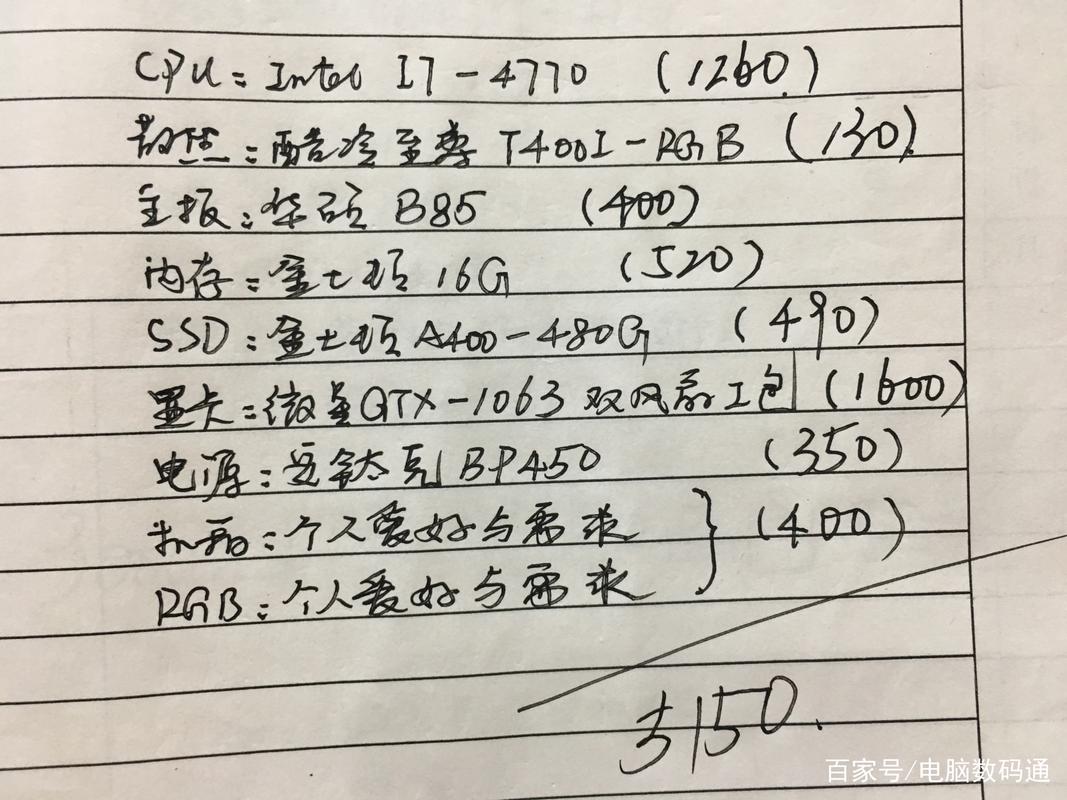 CPU：Intel I7-4770 (1260)
散热：酷冷至尊 T400I-RGB (130)
主板：华硕 B85 (400)
内存：金士顿 16G (520)
SSD：金士顿 A400-480G (490)
显卡：微星GTX-1063 双风扇工包 (1600)
电源：安钛克 BP450 (350)
机箱：个人爱好与需求 (400)
RGB：个人爱好与需求
5150.
百家号/电脑数码通